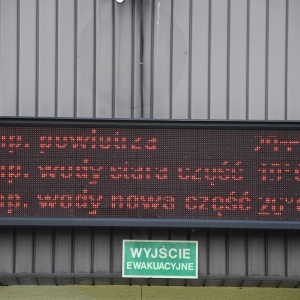 mp. powietrza
mp. wody stara część
mp. wody nowa część
WYJŚCIE
EWAKUACYJNE